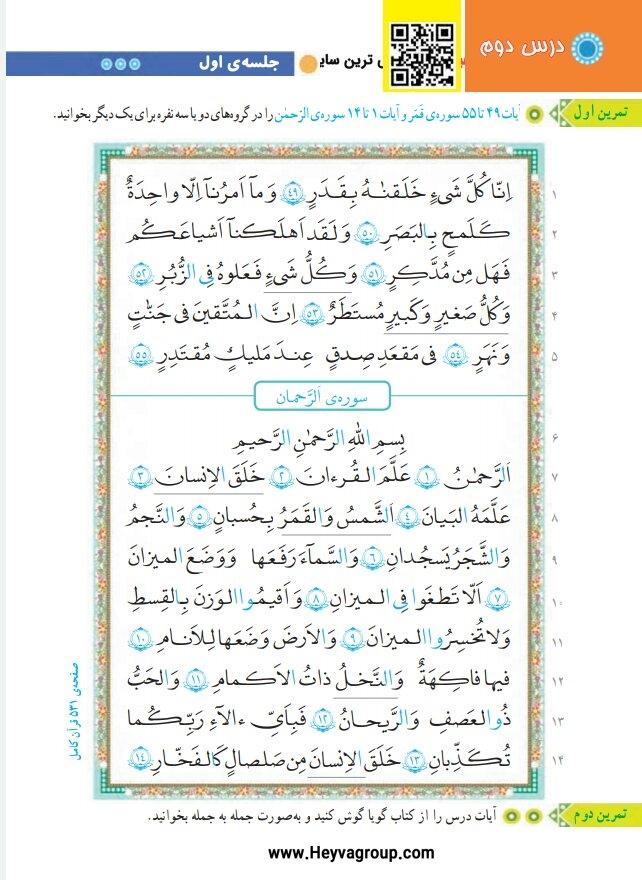 درس دوم
ترین سای
جلسه‌ی اول
تمرین اول
آیات ۴۹ تا ۵۵ سوره‌ی قَمَر و آیات ۱ تا ۱۴ سوره‌ی الرَّحمٰن را در گروه‌های دو یا سه نفره برای یک دیگر بخوانید.
۱ اِنّا کُلَّ شَیءٍ خَلَقنٰهُ بِقَدَرٍ ﴿٤٩﴾ وَ ما اَمرُنآ اِلّا واحِدَةٌ
۲ کَلَمحٍ بِالبَصَرِ ﴿٥٠﴾ وَ لَقَد اَهلَکنآ اَشیاعَکُم
۳ فَهَل مِن مُدَّکِرٍ ﴿٥١﴾ وَ کُلُّ شَیءٍ فَعَلوهُ فِی الزُّبُرِ ﴿٥٢﴾
۴ وَ کُلُّ صَغیرٍ وَ کَبیرٍ مُستَطَرٌ ﴿٥٣﴾ اِنَّ المُتَّقینَ فی جَنّٰتٍ
۵ وَ نَهَرٍ ﴿٥٤﴾ فی مَقعَدِ صِدقٍ عِندَ مَلیکٍ مُقتَدِرٍ ﴿٥٥﴾
سوره‌ی اَلرَّحمان
۶ بِسمِ اللّٰهِ الرَّحمٰنِ الرَّحیمِ
۷ اَلرَّحمٰنُ ﴿١﴾ عَلَّمَ القُرءانَ ﴿٢﴾ خَلَقَ الاِنسانَ ﴿٣﴾
۸ عَلَّمَهُ البَیانَ ﴿٤﴾ اَلشَّمسُ وَ القَمَرُ بِحُسبانٍ ﴿٥﴾ وَ النَّجمُ
۹ وَ الشَّجَرُ یَسجُدانِ ﴿٦﴾ وَ السَّمآءَ رَفَعَها وَ وَضَعَ المیزانَ
۱۰ ﴿٧﴾ اَلّا تَطغَوا فِی المیزانِ ﴿٨﴾ وَ اَقیمُوا الوَزنَ بِالقِسطِ
۱۱ وَ لا تُخسِرُوا المیزانَ ﴿٩﴾ وَ الاَرضَ وَضَعَها لِلاَنامِ ﴿١٠﴾
۱۲ فیها فاکِهَةٌ وَ النَّخلُ ذاتُ الاَکمامِ ﴿١١﴾ وَ الحَبُّ
۱۳ ذُو العَصفِ وَ الرَّیحانُ ﴿١٢﴾ فَبِاَیِّ ءالآءِ رَبِّکُما
۱۴ تُکَذِّبانِ ﴿١٣﴾ خَلَقَ الاِنسانَ مِن صَلصالٍ کَالفَخّارِ ﴿١٤﴾
صفحه‌ی ۵۳۱ قرآن کامل
تمرین دوم
آیات درس را از کتاب گویا گوش کنید و به‌صورت جمله به جمله بخوانید.
www.Heyvagroup.com